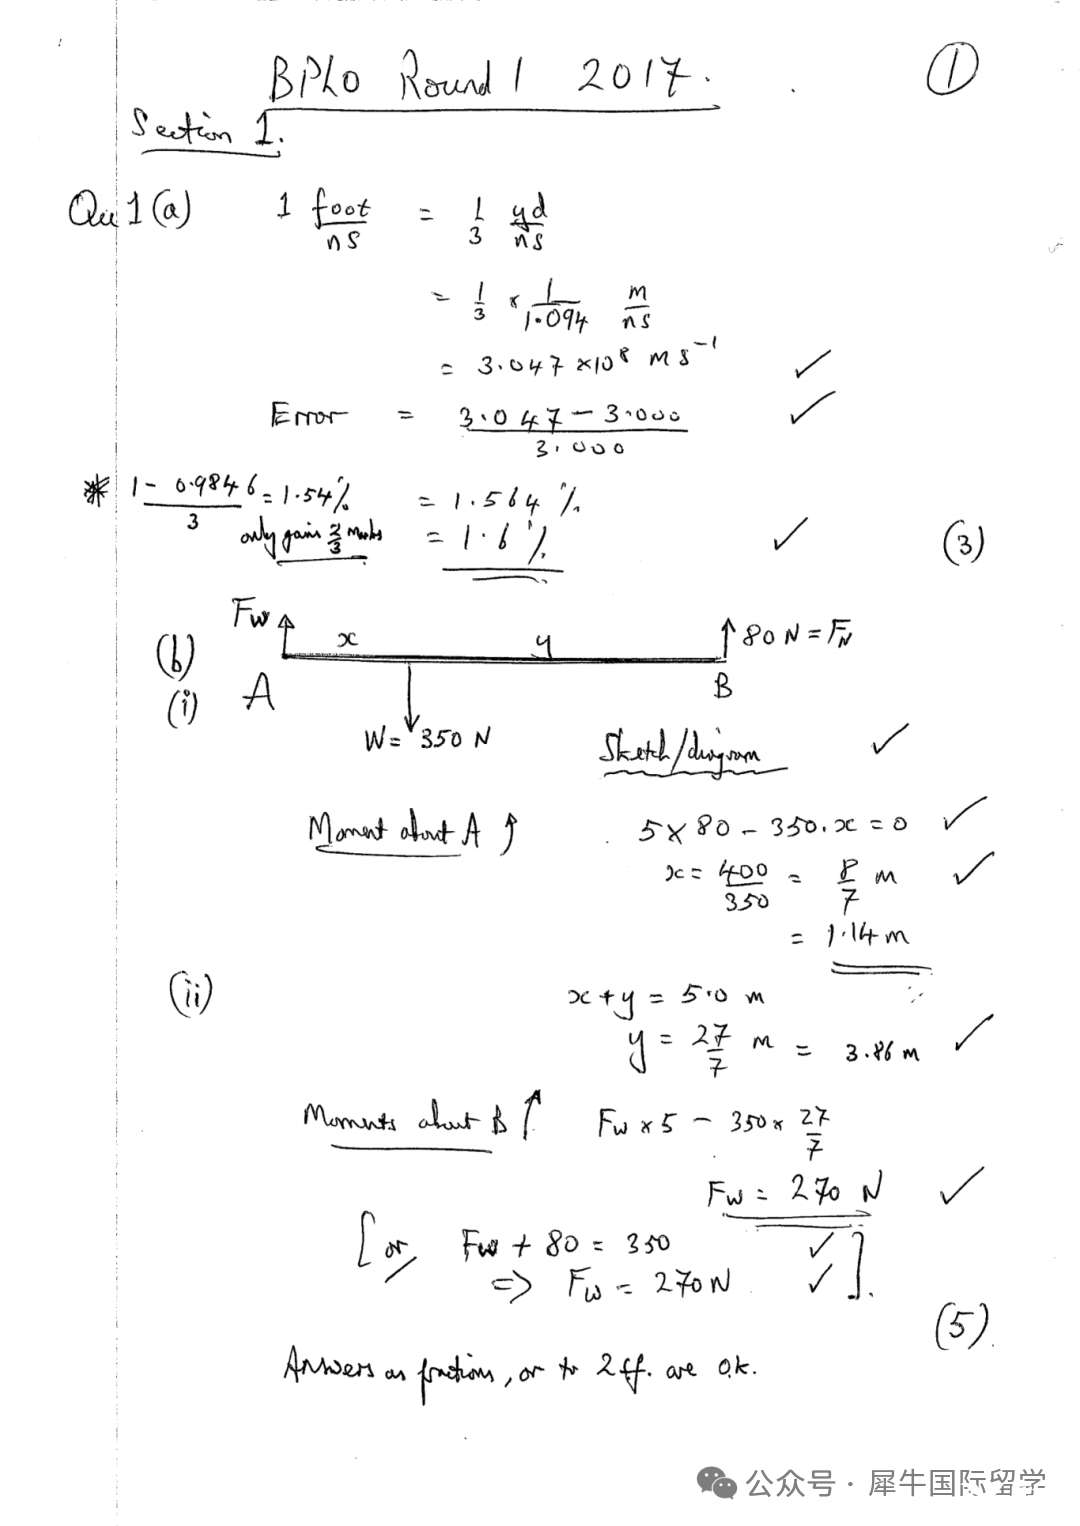 BPhO Round 1 2017.
①
Section 1.
Qu 1 (a) 1 foot/ns = 1/3 yd/ns
= 1/3 × 1/1.094 m/ns
= 3.047 × 10⁸ m s⁻¹ ✓
Error = (3.047 − 3.000)/3.000 ✓
* (1 − 0.9846)/3 = 1.54% = 1.564%
only gains 2/3 marks = 1.6% ✓ (3)
(b) Fw x y 80 N = F_N
(i) A B
W = 350 N Sketch/diagram ✓
Moment about A 5 × 80 − 350.x = 0 ✓
x = 400/350 = 8/7 m ✓
= 1.14 m
(ii) x + y = 5.0 m
y = 27/7 m = 3.86 m ✓
Moments about B Fw × 5 − 350 × 27/7
Fw = 270 N ✓
[or, Fw + 80 = 350 ✓
=> Fw = 270 N ✓].
(5).
Answers as fractions, or to 2 sf. are o.k.
公众号 · 犀牛国际留学